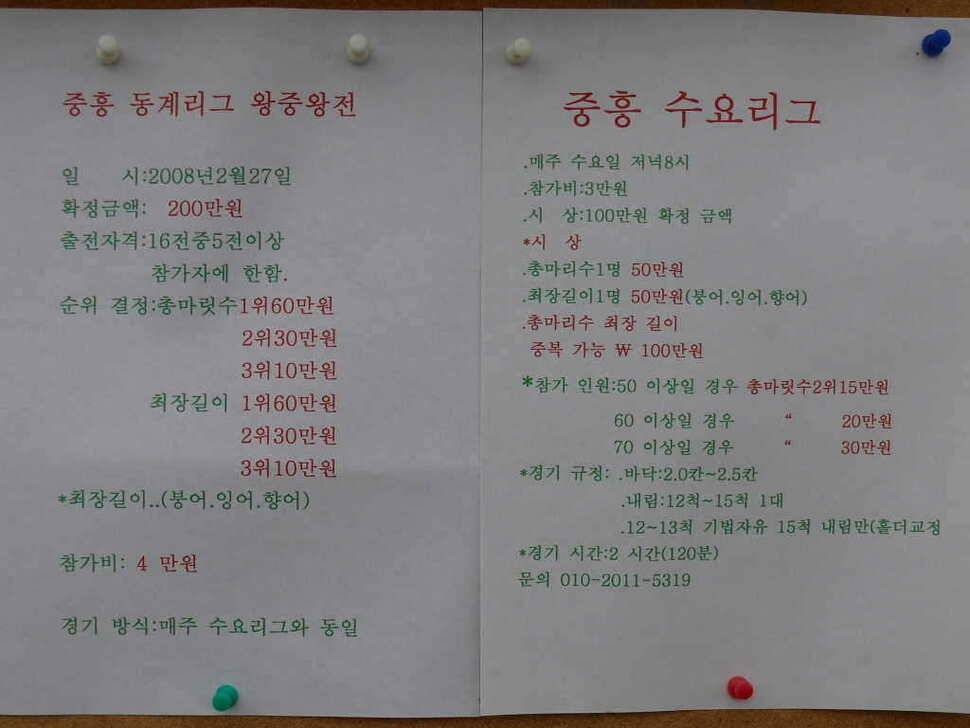 중흥 동계리그 왕중왕전
일 시:2008년2월27일
확정금액: 200만원
출전자격:16전중5전이상
참가자에 한함.
순위 결정:총마릿수1위60만원
2위30만원
3위10만원
최장길이 1위60만원
2위30만원
3위10만원
*최장길이..(붕어.잉어.향어)
참가비: 4 만원
경기 방식:매주 수요리그와 동일
중흥 수요리그
.매주 수요일 저녁8시
.참가비:3만원
.시 상:100만원 확정 금액
*시 상
.총마리수1명 50만원
.최장길이1명 50만원(붕어.잉어.향어)
.총마리수 최장 길이
중복 가능 ₩ 100만원
*참가 인원:50 이상일 경우 총마릿수2위15만원
60 이상일 경우 “ 20만원
70 이상일 경우 “ 30만원
*경기 규정: .바닥:2.0칸~2.5칸
.내림:12척~15척 1대
.12~13척 기법자유 15척 내림만(홀더교정
*경기 시간:2 시간(120분)
문의 010-2011-5319